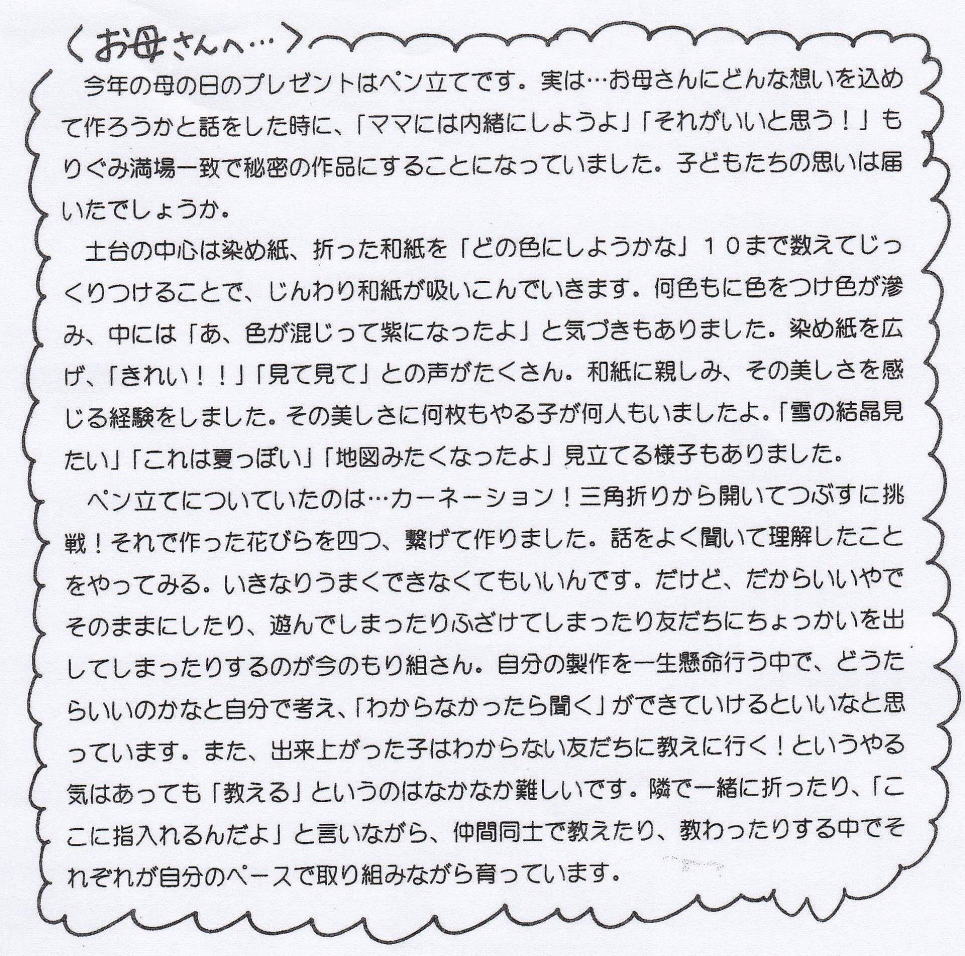 〈お母さんへ…〉
今年の母の日のプレゼントはペン立てです。実は…お母さんにどんな想いを込め
て作ろうかと話をした時に、「ママには内緒にしようよ」「それがいいと思う！」も
りぐみ満場一致で秘密の作品にすることになっていました。子どもたちの思いは届
いたでしょうか。
土台の中心は染め紙、折った和紙を「どの色にしようかな」１０まで数えてじっ
くりつけることで、じんわり和紙が吸いこんでいきます。何色もに色をつけ色が滲
み、中には「あ、色が混じって紫になったよ」と気づきもありました。染め紙を広
げ、「きれい！！」「見て見て」との声がたくさん。和紙に親しみ、その美しさを感
じる経験をしました。その美しさに何枚もやる子が何人もいましたよ。「雪の結晶見
たい」「これは夏っぽい」「地図みたくなったよ」見立てる様子もありました。
ペン立てについていたのは…カーネーション！三角折りから開いてつぶすに挑
戦！それで作った花びらを四つ、繋げて作りました。話をよく聞いて理解したこと
をやってみる。いきなりうまくできなくてもいいんです。だけど、だからいいやで
そのままにしたり、遊んでしまったりふざけてしまったり友だちにちょっかいを出
してしまったりするのが今のもり組さん。自分の製作を一生懸命行う中で、どうた
らいいのかなと自分で考え、「わからなかったら聞く」ができていけるといいなと思
っています。また、出来上がった子はわからない友だちに教えに行く！というやる
気はあっても「教える」というのはなかなか難しいです。隣で一緒に折ったり、「こ
こに指入れるんだよ」と言いながら、仲間同士で教えたり、教わったりする中でそ
れぞれが自分のペースで取り組みながら育っています。